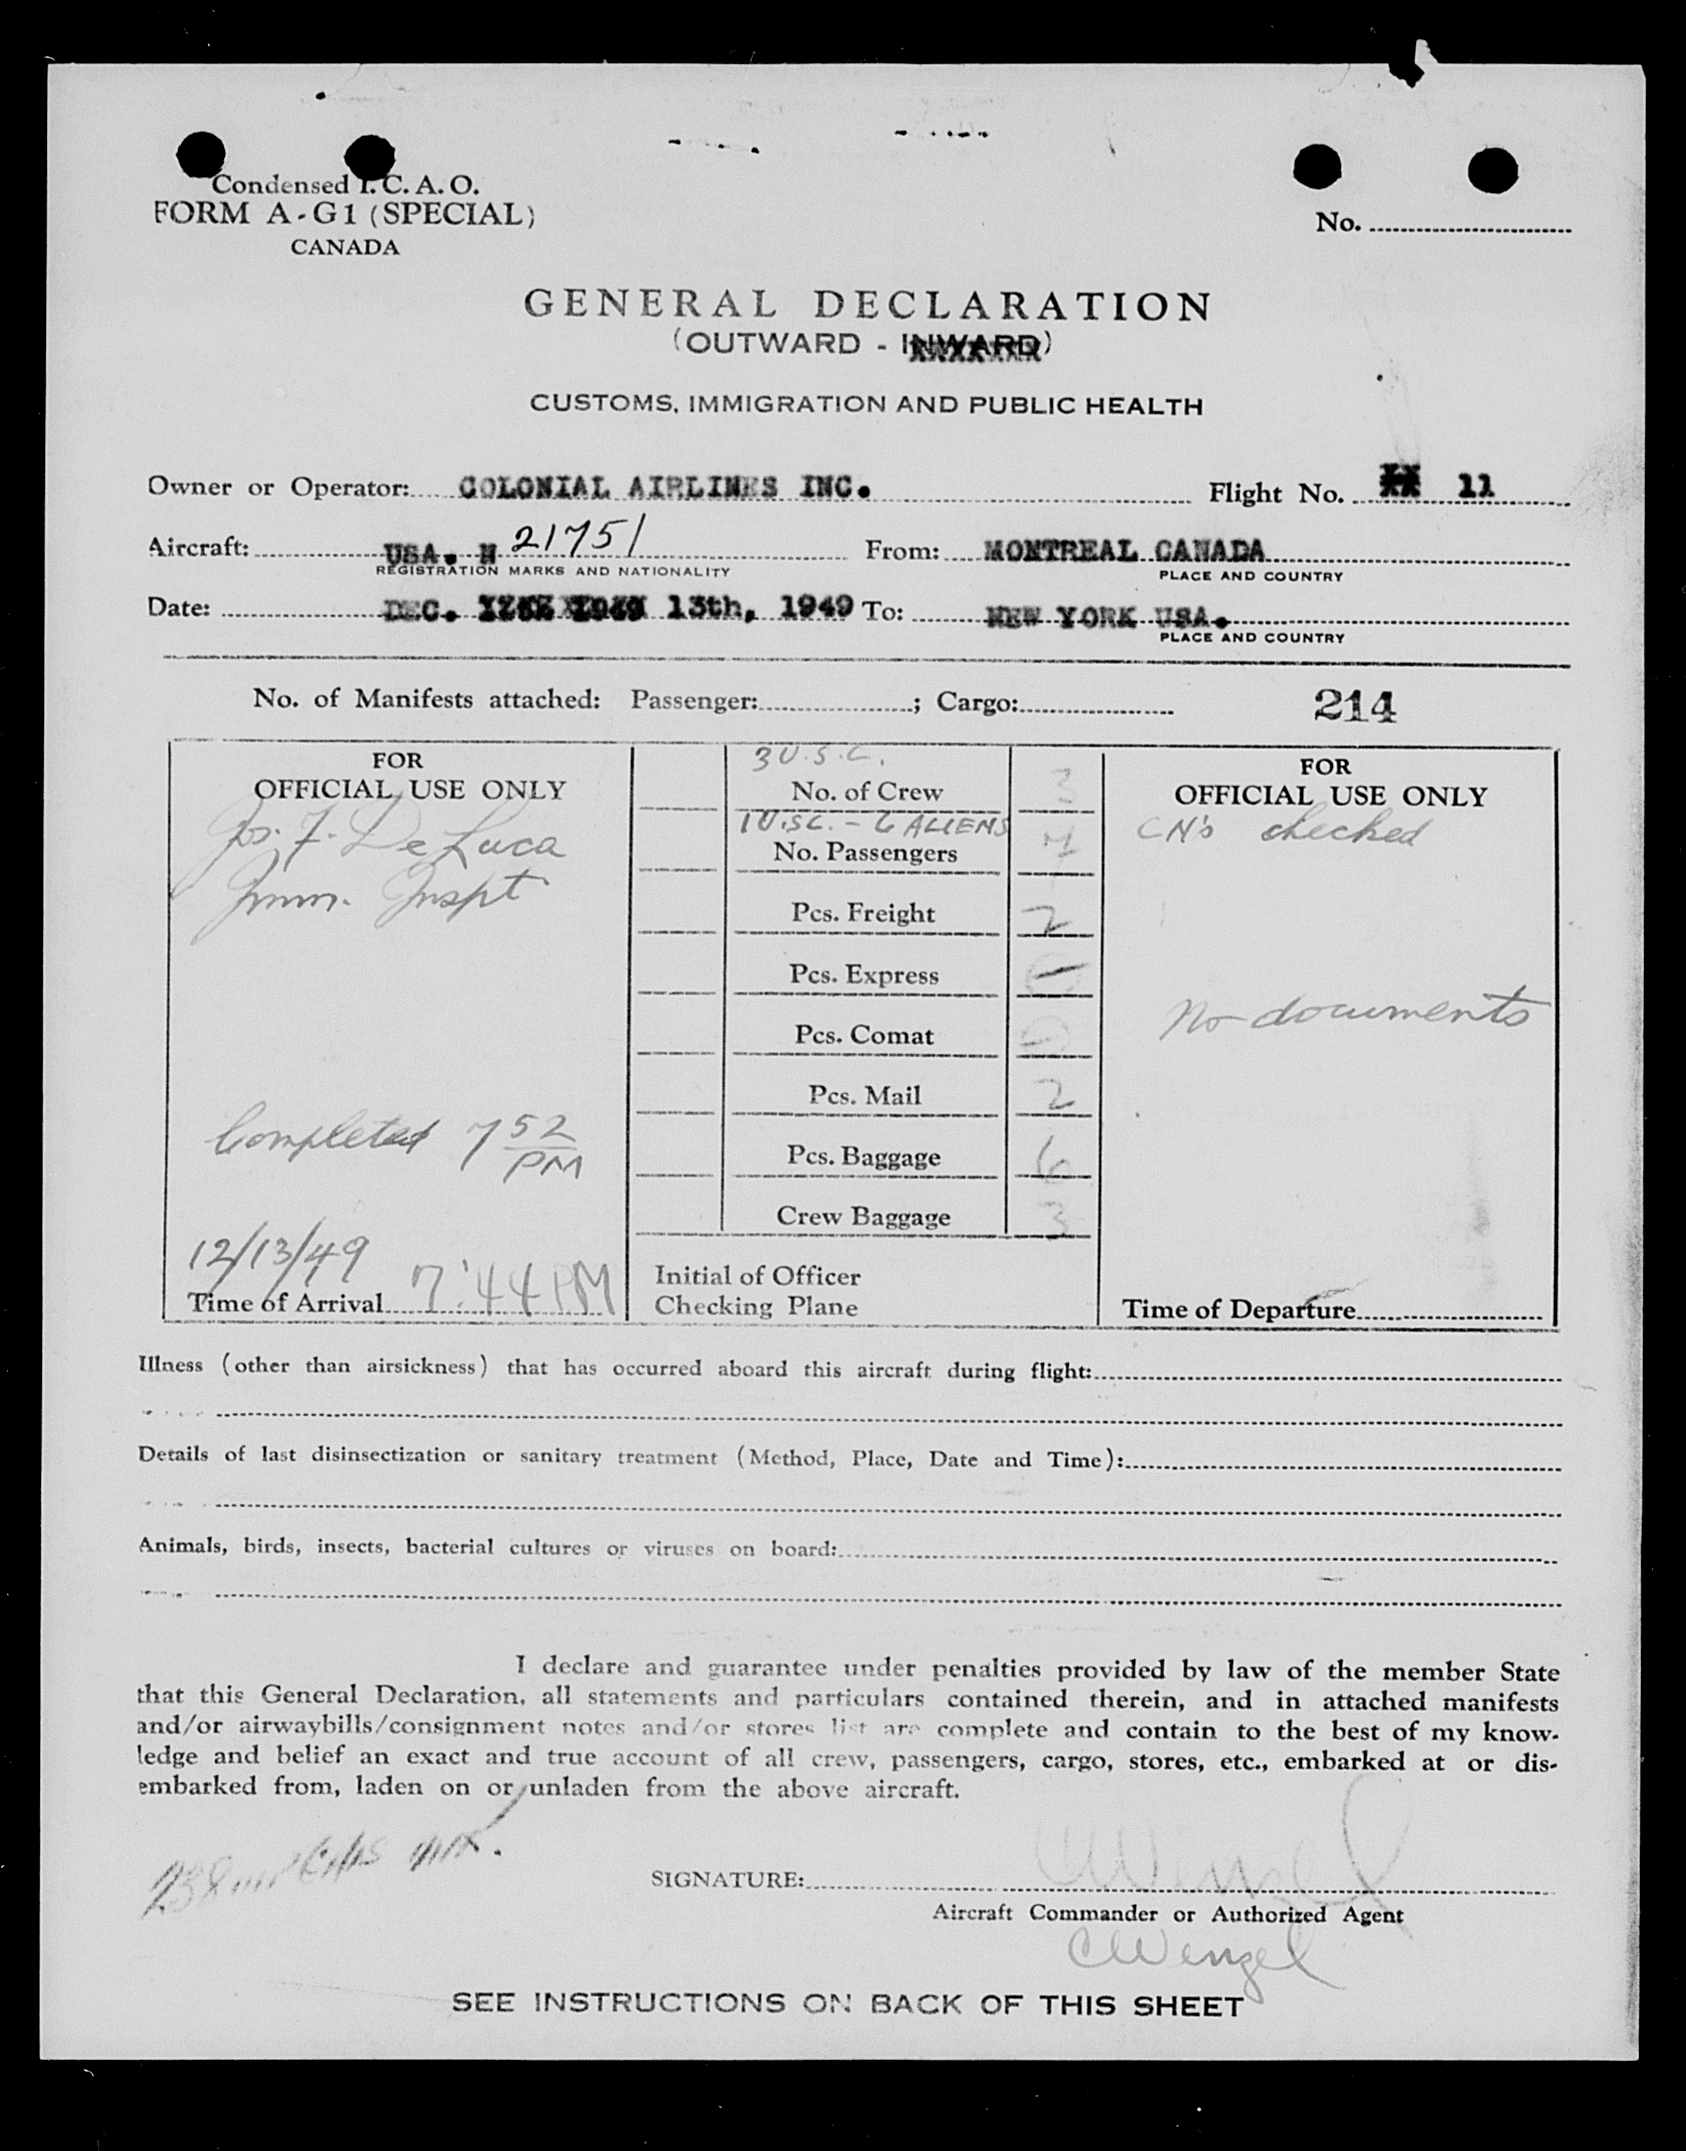 Condensed I. C. A. O.
FORM A-G1 (SPECIAL)
CANADA
No.
GENERAL DECLARATION
(OUTWARD - INWARD)
CUSTOMS, IMMIGRATION AND PUBLIC HEALTH
Owner or Operator: COLONIAL AIRLINES INC. Flight No. 11
Aircraft: USA. N 21751 From: MONTREAL CANADA
REGISTRATION MARKS AND NATIONALITY PLACE AND COUNTRY
Date: DEC. 13th, 1949 To: NEW YORK USA.
PLACE AND COUNTRY
No. of Manifests attached: Passenger: ; Cargo: 214
FOR
OFFICIAL USE ONLY
Jos. F. De Luca
Imm. Inspt
Completed 7 52 PM
12/13/49
Time of Arrival 7:44 PM
3 U.S.C.
No. of Crew 3
1 U.SC. - 6 ALIENS
No. Passengers 7
Pcs. Freight 2
Pcs. Express -
Pcs. Comat -
Pcs. Mail 2
Pcs. Baggage 6
Crew Baggage 3
Initial of Officer
Checking Plane
FOR
OFFICIAL USE ONLY
CN's checked
No documents
Time of Departure
Illness (other than airsickness) that has occurred aboard this aircraft during flight:
Details of last disinsectization or sanitary treatment (Method, Place, Date and Time):
Animals, birds, insects, bacterial cultures or viruses on board:
I declare and guarantee under penalties provided by law of the member State
that this General Declaration, all statements and particulars contained therein, and in attached manifests
and/or airwaybills/consignment notes and/or stores list are complete and contain to the best of my know-
ledge and belief an exact and true account of all crew, passengers, cargo, stores, etc., embarked at or dis-
embarked from, laden on or unladen from the above aircraft.
SIGNATURE: CWenzel
Aircraft Commander or Authorized Agent
CWenzel
SEE INSTRUCTIONS ON BACK OF THIS SHEET